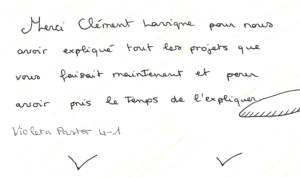 Merci Clément Lavigne pour nous
avoir expliqué tout les projets que
vous faisait maintenent et pour
avoir pris le Temps de l'expliquer
Violeta Pastor 4-1